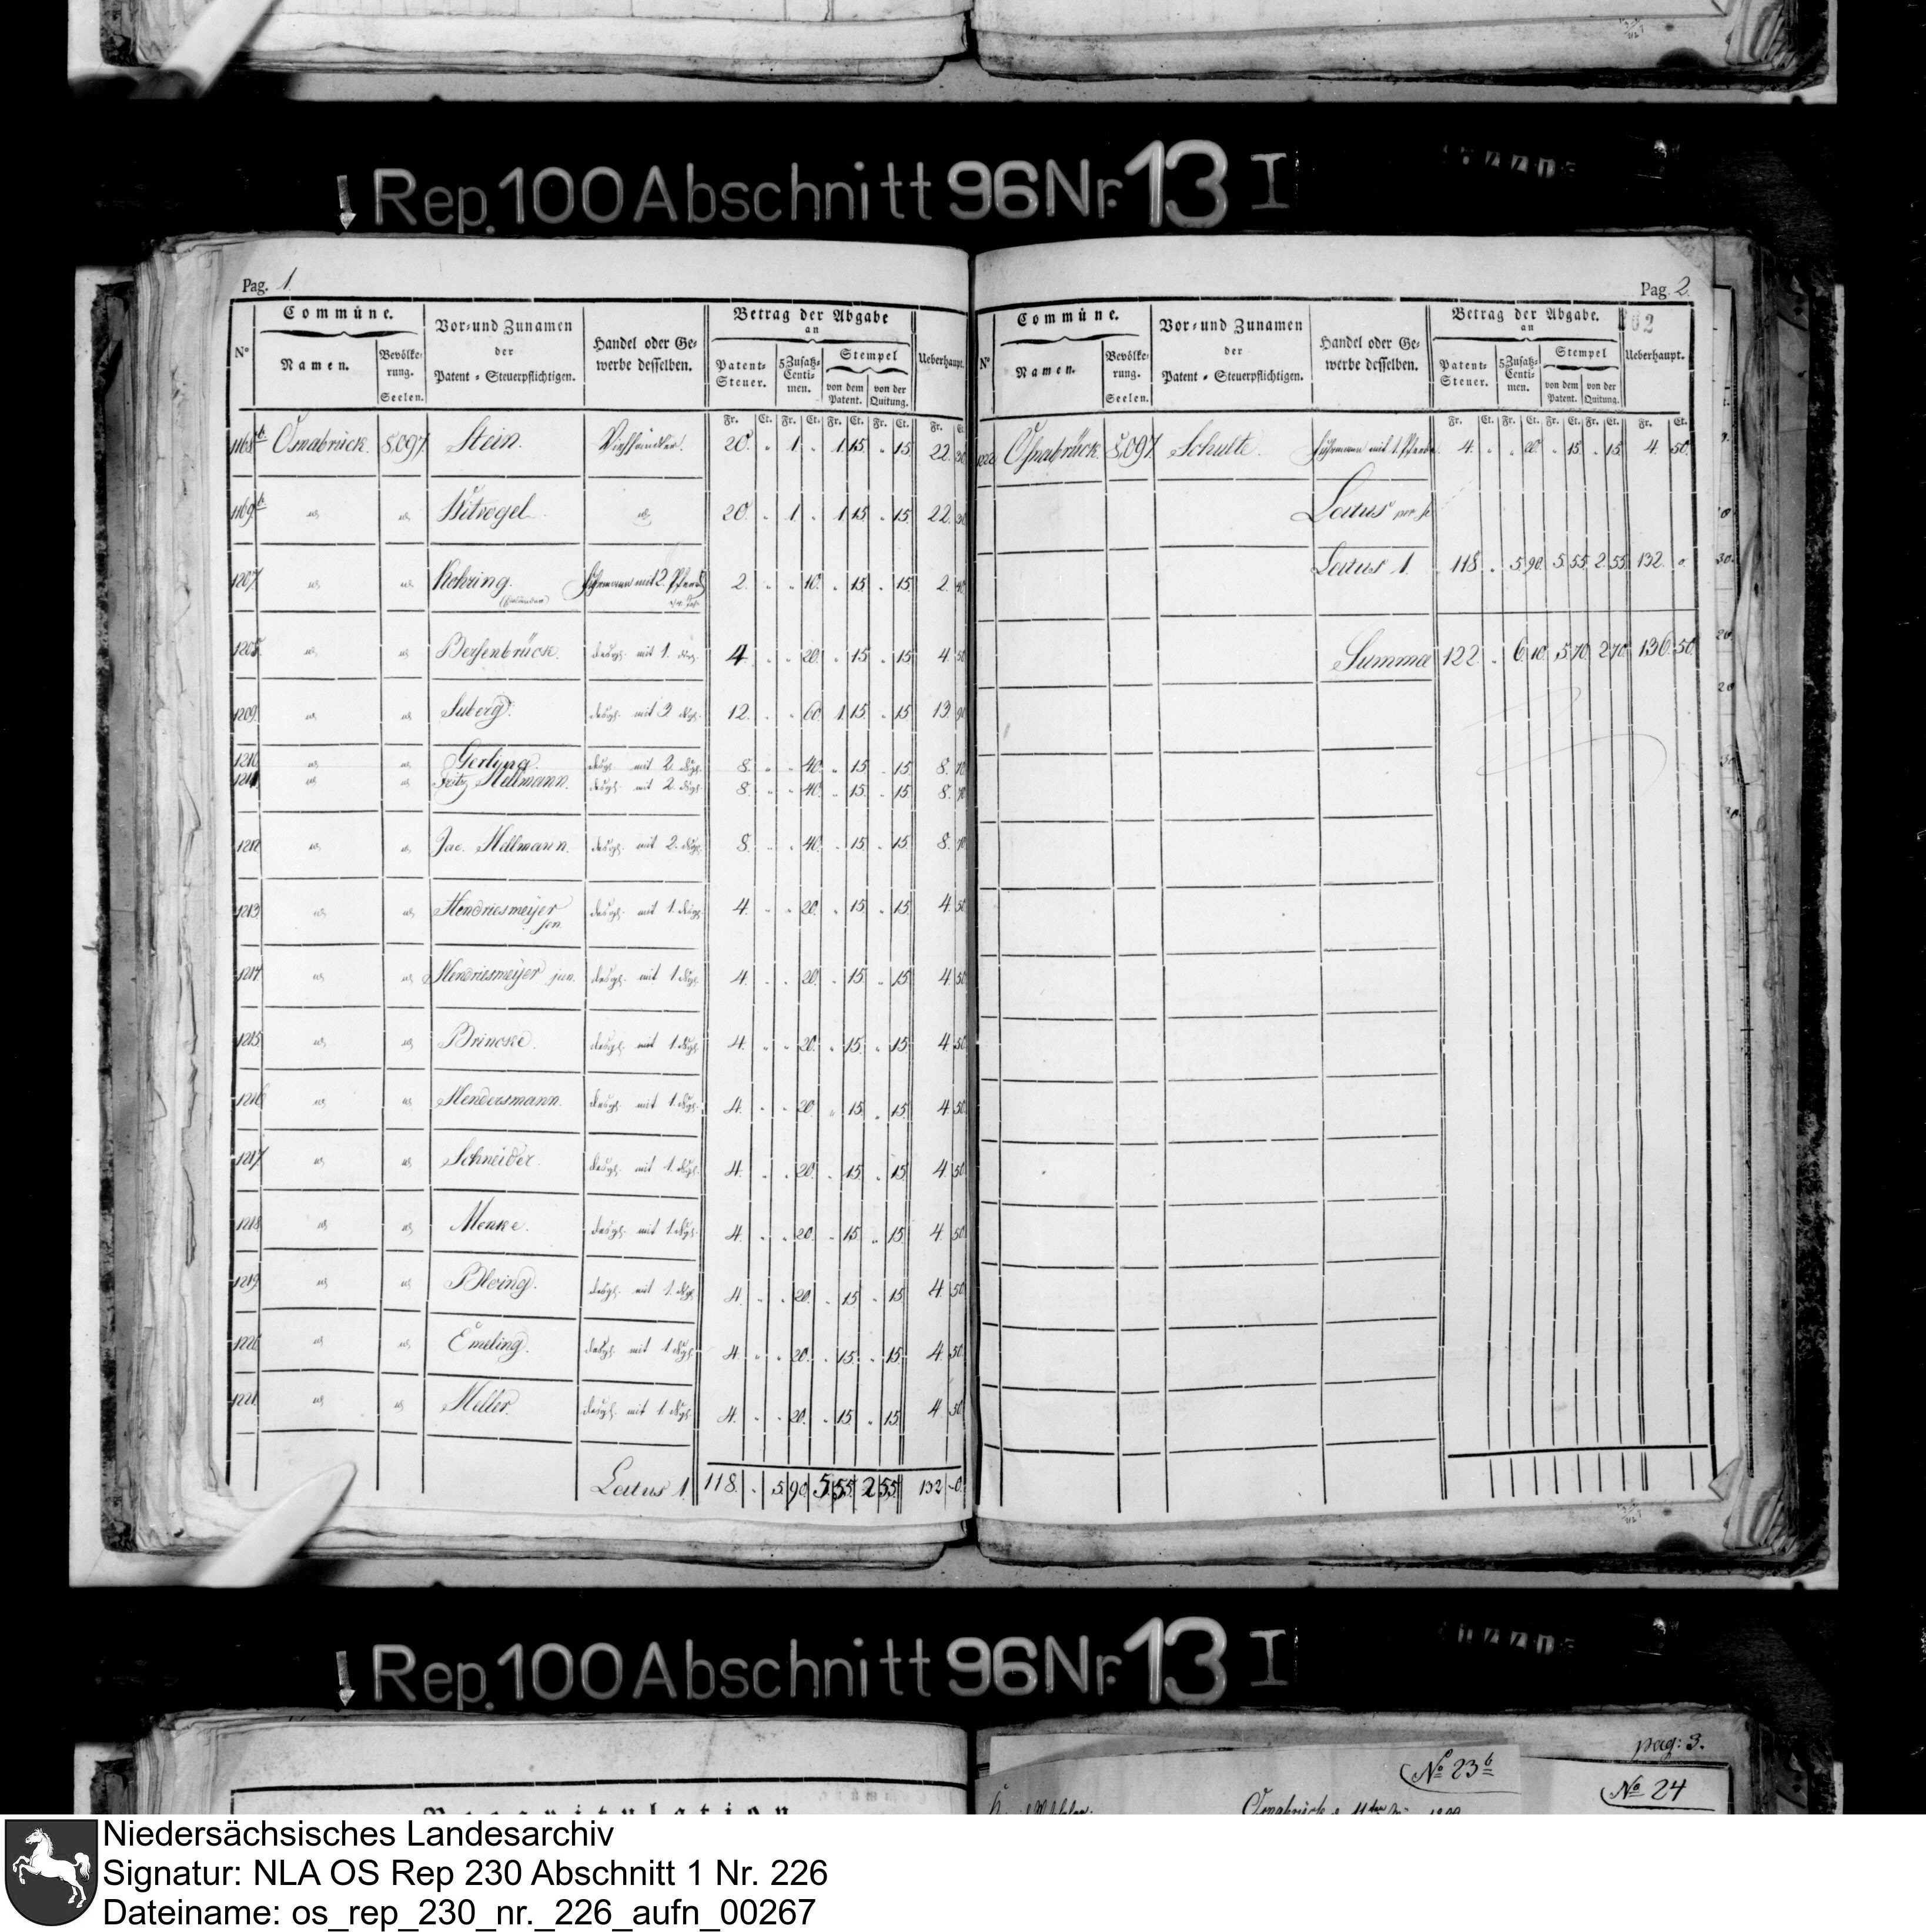 Rep. 100 Abschnitt 96 Nr. 13 I
Pag. 1.
N°
Commüne.
Namen.
Bevölke-
rung.
Seelen.
Vor- und Zunamen
der
Patent-Steuerpflichtigen.
Handel oder Ge-
werbe desselben.
Betrag der Abgabe
an
Patent-
Steuer.
5 Zusatz-
Centi-
men.
Stempel
von dem
Patent.
von der
Quitung.
Ueberhaupt.
Fr. Ct. Fr. Ct. Fr. Ct. Fr. Ct. Fr. Ct.
1168b Osnabrück. 8,097. Stein. Viehhändler. 20. " 1. " 1. 15. " 15. 22. 30
1169b Sitvogel. 20. " 1. " 1. 15. " 15. 22. 30
1207. Kohring. Fuhrmann mit 2. Pferd 2. " " 10. " 15. " 15. 2. 40
1208. Bersenbrück. desgl. mit 1. dsgl. 4. " " 20. " 15. " 15. 4. 50
1209. Suberg. desgl. mit 3 dsgl. 12. " " 60. 1. 15. " 15. 13. 90
1210. Gerling. desgl. mit 2. dsgl. 8. " " 40. " 15. " 15. 8. 70
1211. Fritz Hellmann. desgl. mit 2. dsgl. 8. " " 40. " 15. " 15. 8. 70
1212 Jac. Hellmann. desgl. mit 2. dsgl. 8. " " 40. " 15. " 15. 8. 70
1213 Hendriesmeijer sen. desgl. mit 1. dsgl. 4. " " 20. " 15. " 15. 4. 50
1214. Hendriesmeijer jun. desgl. mit 1. dsgl. 4. " " 20. " 15. " 15. 4. 50
1215 Brincke. desgl. mit 1. dsgl. 4. " " 20. " 15. " 15. 4. 50
1216 desgl. mit 1. dsgl. 4. " " 20. " 15. " 15. 4. 50
1217 Schneider. desgl. mit 1. dsgl. 4. " " 20. " 15. " 15. 4. 50
1218. Menke. desgl. mit 1. dsgl. 4. " " 20. " 15. " 15. 4. 50
1219. desgl. mit 1. dsgl. 4. " " 20. " 15. " 15. 4. 50
1220. Emeling. desgl. mit 1. dsgl. 4. " " 20. " 15. " 15. 4. 50
1221. Meller. desgl. mit 1. dsgl. 4. " " 20. " 15. " 15. 4 50
Latus 1. 118. " 5 90. 5. 55. 2 55 132 - 0.
Pag. 2.
102
N°
Commüne.
Namen.
Bevölke-
rung.
Seelen.
Vor- und Zunamen
der
Patent-Steuerpflichtigen.
Handel oder Ge-
werbe desselben.
Betrag der Abgabe.
an
Patent-
Steuer.
5 Zusatz-
Centi-
men.
Stempel
von dem
Patent.
von der
Quitung.
Ueberhaupt.
Fr. Ct. Fr. Ct. Fr. Ct. Fr. Ct. Fr. Ct.
1222 Osnabrück. 8,097 Schulte. Fuhrmann mit 1. Pferde 4. " " 20. " 15. " 15. 4. 50.
Latus per se
Latus 1. 118 " 5. 90. 5. 55. 2. 55. 132. 0
Summa 122. " 6. 10. 5 70. 2 70. 136. 50.
Rep. 100 Abschnitt 96 Nr. 13 I
pag: 3.
No 23b
No 24
Niedersächsisches Landesarchiv
Signatur: NLA OS Rep 230 Abschnitt 1 Nr. 226
Dateiname: os_rep_230_nr._226_aufn_00267